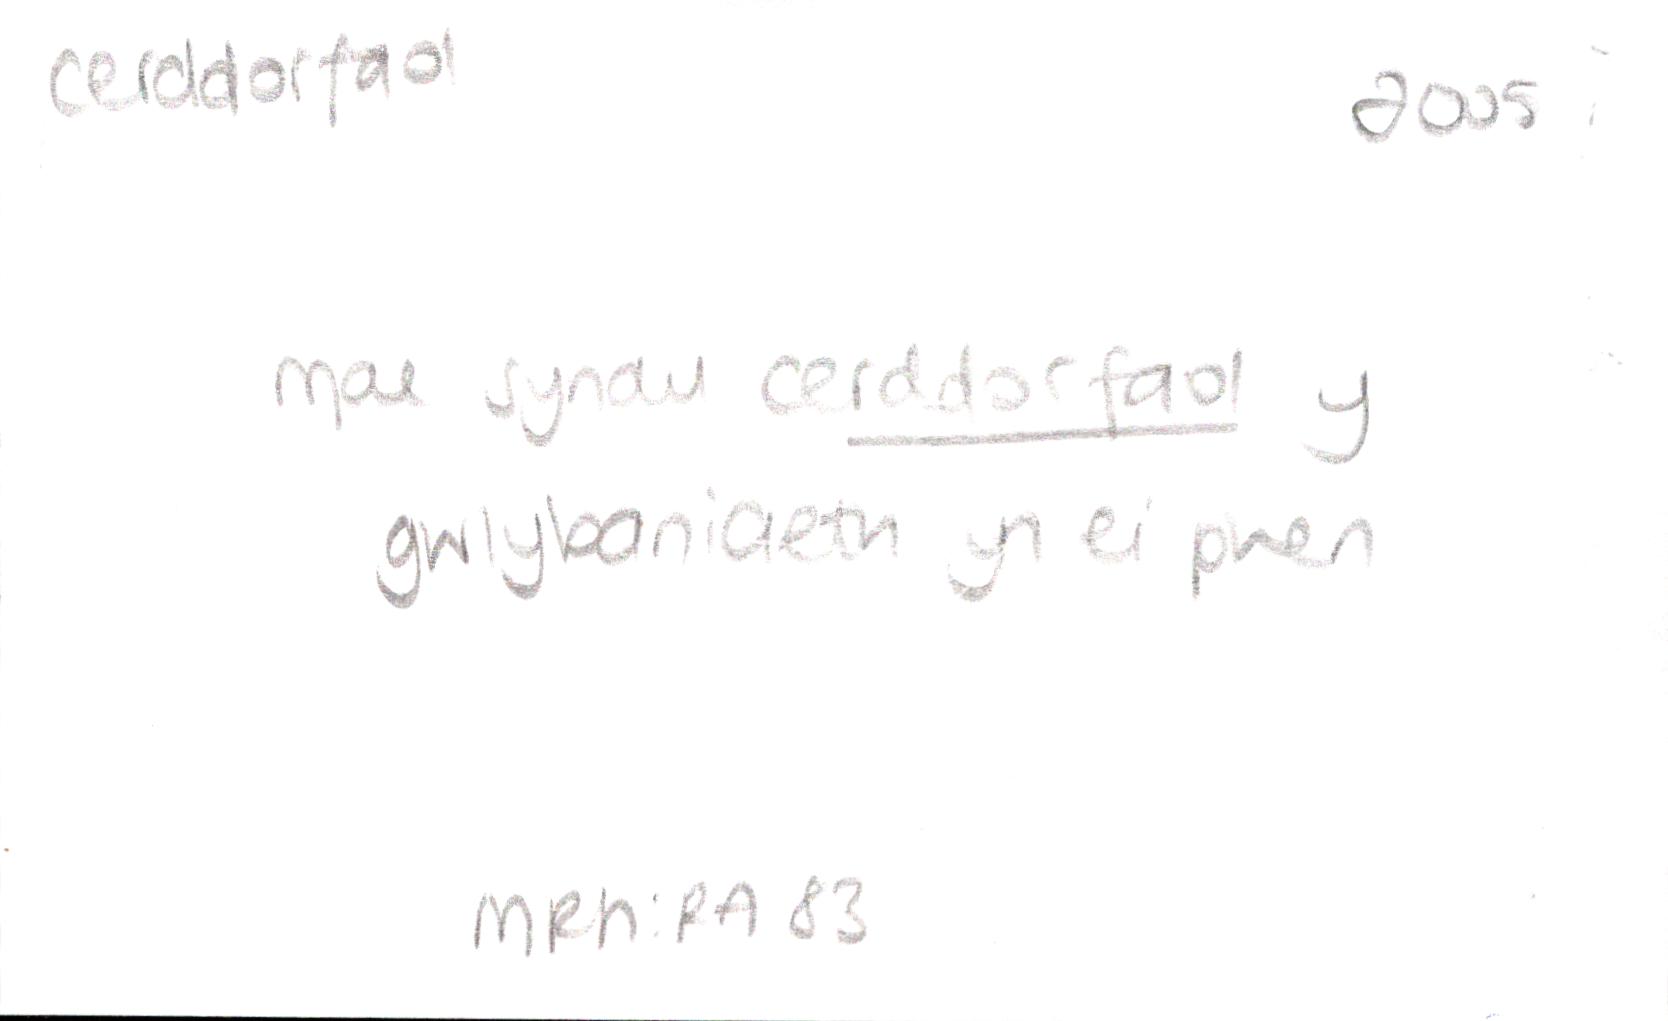 cerddorfaol
2005
mae synau cerddorfaol y
gwlybaniaeth yn ei phen
MRh:RA 83